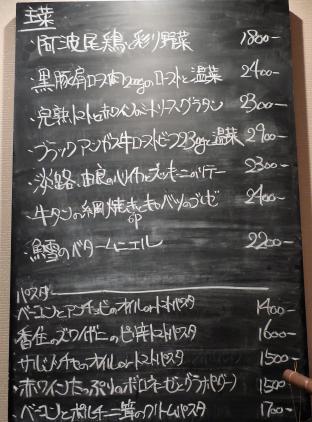 主菜
・阿波尾鶏と彩り野菜 1800-
・黒豚肩ロース肉200gのローストと温菜 2400-
・完熟トマトとホワイソースのミートソースグラタン 2300-
・ブラックアンガス牛ロースト 230gと温菜 2900-
・淡路・由良の ズッキーニのソテー 2300-
・牛タンの網焼きとキャベツのブレゼ 2400-
・鱈のバタームニエル 2200-
パスタ
・ベーコンとアンチョビのオイルorトマトパスタ 1400-
・香住のズワイガニのピリ辛トマトパスタ 1600-
・サルシッチャのオイルorトマトパスタ 1500-
・赤ワインたっぷりのボロネーゼとグラナパダーノ 1500-
・ベーコンとポルチーニ茸のクリームパスタ 1700-